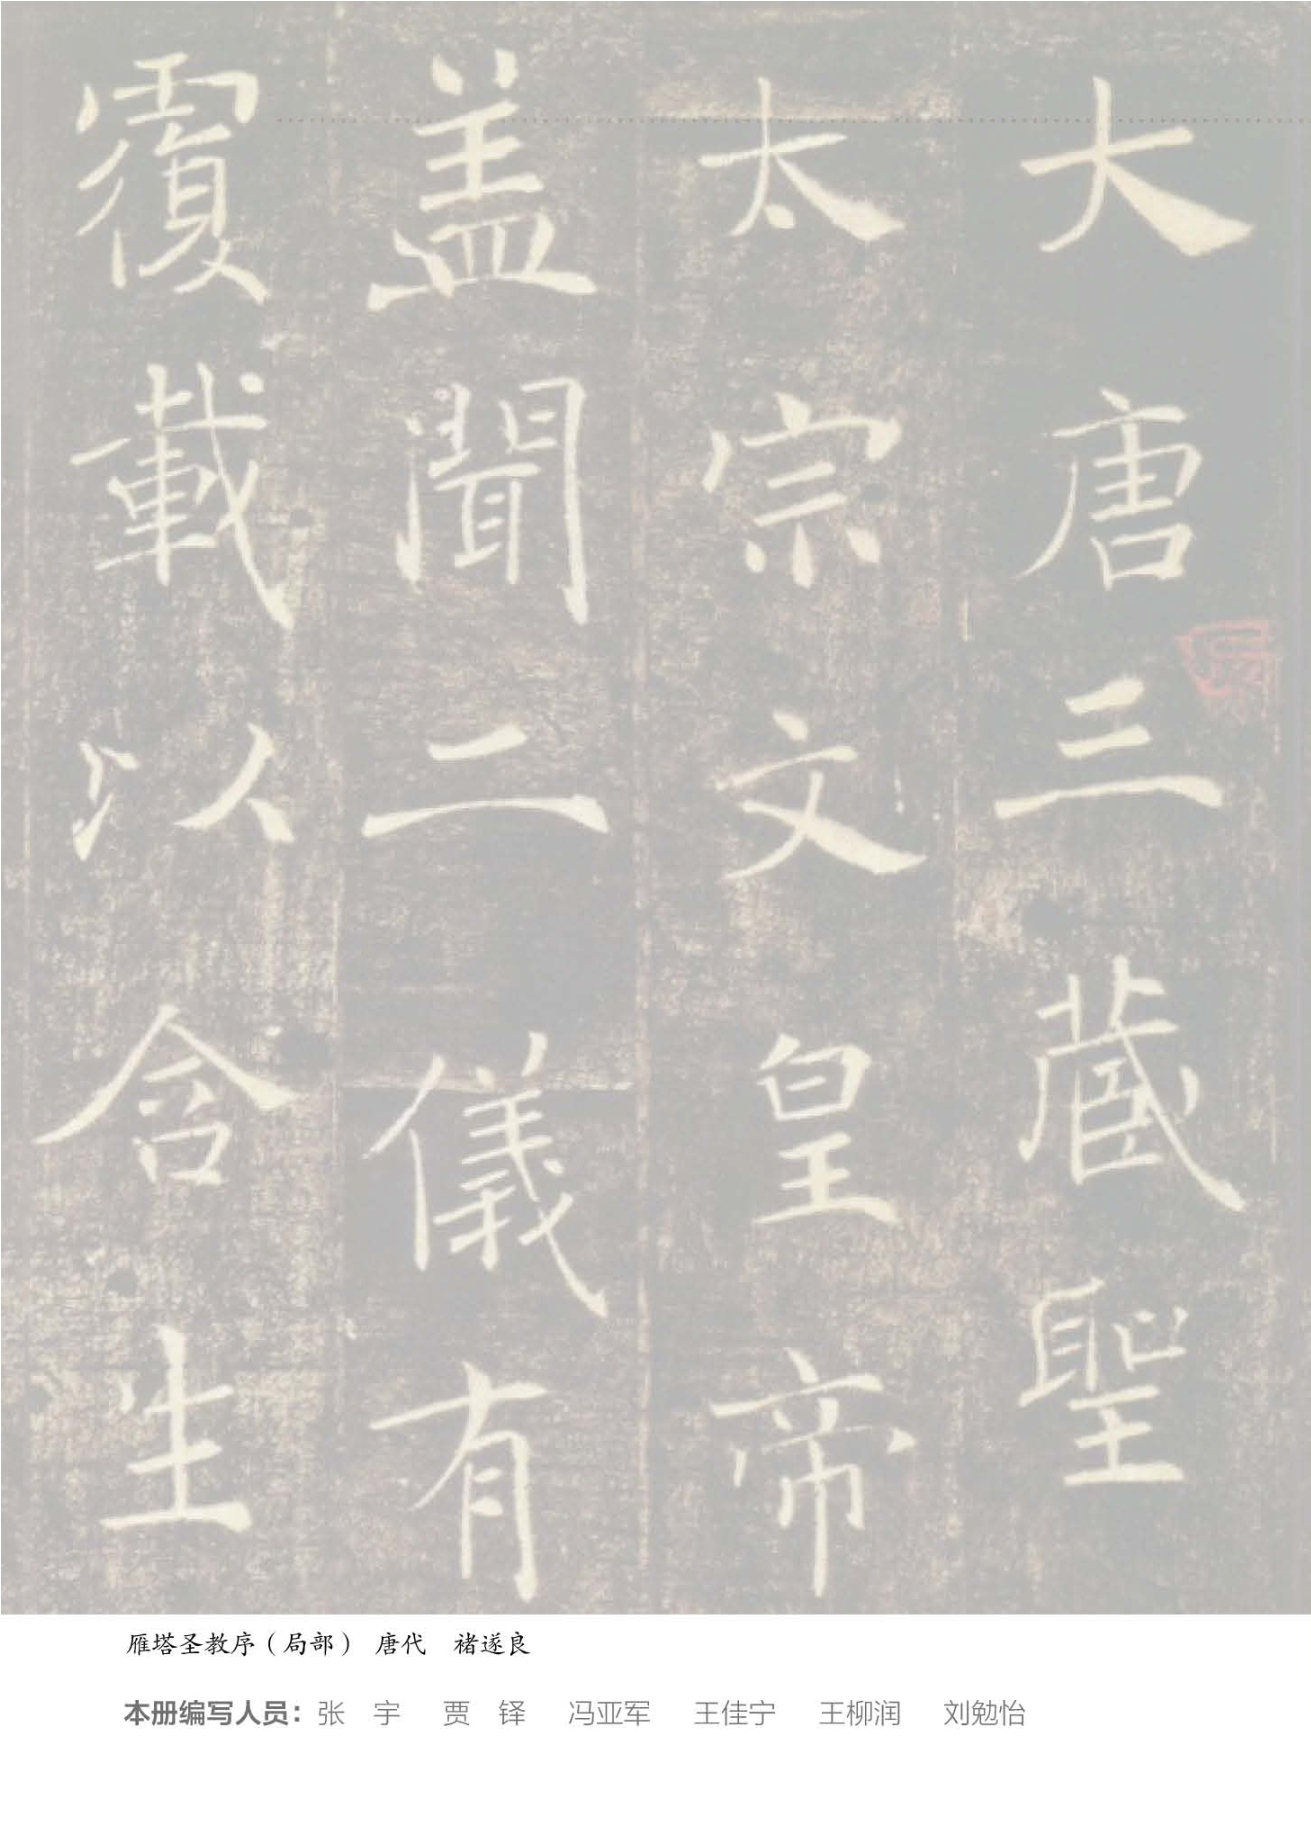 大唐三藏聖
太宗文皇帝
盖聞二儀有
覆載以含生
雁塔圣教序（局部） 唐代 褚遂良
本册编写人员：张 宇 贾 铎 冯亚军 王佳宁 王柳润 刘勉怡